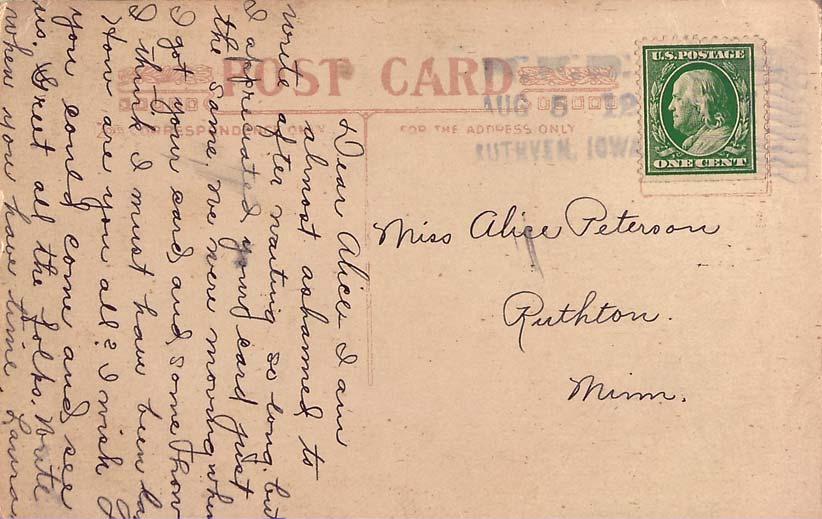 POST CARD
CORRESPONDENCE ONLY
FOR THE ADDRESS ONLY
AUG 5 12
RUTHVEN, IOWA
U.S. POSTAGE
ONE CENT
Miss Alice Peterson
Ruthton.
Minn.
Dear Alice I am
almost ashamed to
write after waiting so long, but
I appreciated your card just
the same. We were moving when
I got your card, and some how
I think I must have been
How are you all? I wish
you could come and see
us. Greet all the folks. Write
when you have time, Laura